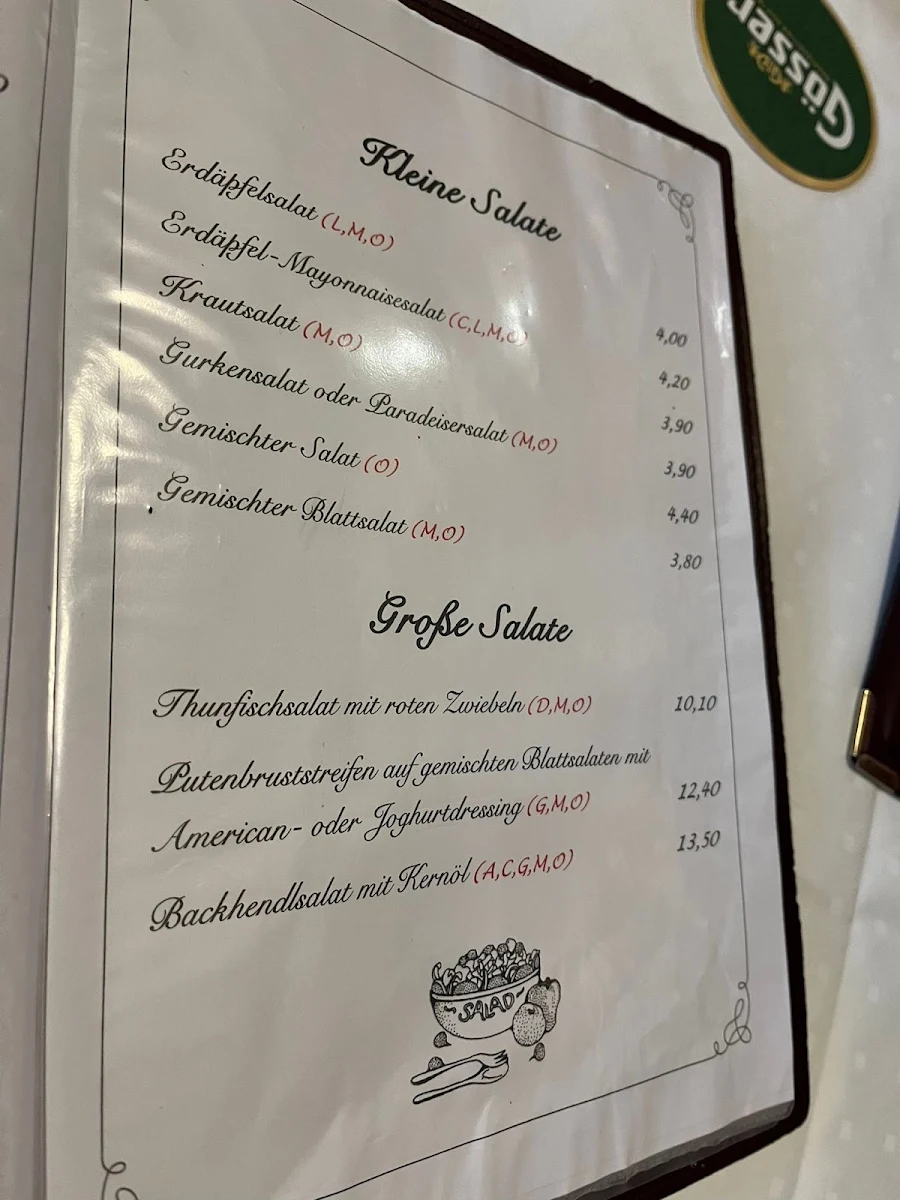 Gösser
Kleine Salate
Erdäpfelsalat (L,M,O) 4,00
Erdäpfel-Mayonnaisesalat (C,L,M,O) 4,20
Krautsalat (M,O) 3,90
Gurkensalat oder Paradeisersalat (M,O) 3,90
Gemischter Salat (O) 4,40
Gemischter Blattsalat (M,O) 3,80
Große Salate
Thunfischsalat mit roten Zwiebeln (D,M,O) 10,10
Putenbruststreifen auf gemischten Blattsalaten mit
American- oder Joghurtdressing (G,M,O) 12,40
Backhendlsalat mit Kernöl (A,C,G,M,O) 13,50
SALAD